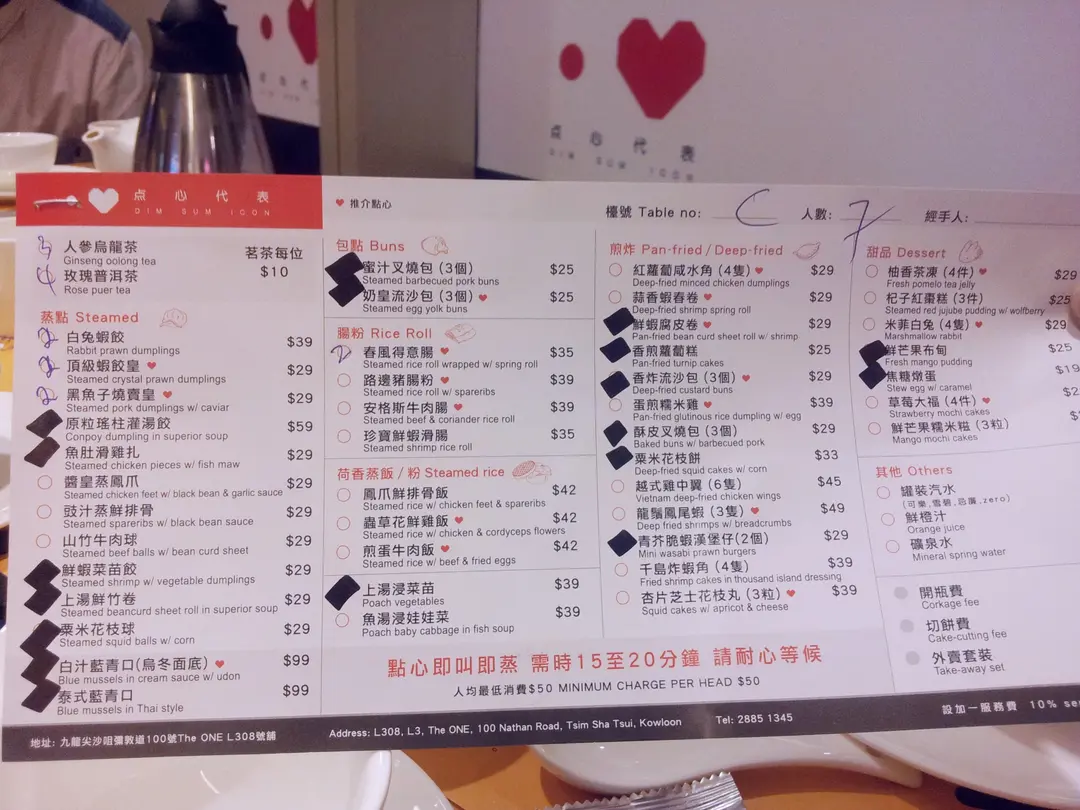 点 心 代 表
DIM SUM ICON
点 心 代 表
DIM SUM ICON
♥ 推介點心
檯號 Table no: C
人數: 7
經手人:
人參烏龍茶
Ginseng oolong tea
玫瑰普洱茶
Rose puer tea
茗茶每位
$10
蒸點 Steamed
白兔蝦餃 $39
Rabbit prawn dumplings
頂級蝦餃皇 ♥ $29
Steamed crystal prawn dumplings
黑魚子燒賣皇 ♥ $29
Steamed pork dumplings w/ caviar
原粒瑤柱灌湯餃 $59
Conpoy dumpling in superior soup
魚肚滑雞扎 $29
Steamed chicken pieces w/ fish maw
醬皇蒸鳳爪 $29
Steamed chicken feet w/ black bean & garlic sauce
豉汁蒸鮮排骨 $29
Steamed spareribs w/ black bean sauce
山竹牛肉球 $29
Steamed beef balls w/ bean curd sheet
鮮蝦菜苗餃 $29
Steamed shrimp w/ vegetable dumplings
上湯鮮竹卷 $29
Steamed beancurd sheet roll in superior soup
粟米花枝球 $29
Steamed squid balls w/ corn
白汁藍青口(烏冬面底) ♥ $99
Blue mussels in cream sauce w/ udon
泰式藍青口 $99
Blue mussels in Thai style
包點 Buns
蜜汁叉燒包 (3個) $25
Steamed barbecued pork buns
奶皇流沙包 (3個) ♥ $25
Steamed egg yolk buns
腸粉 Rice Roll
春風得意腸 ♥ $35
Steamed rice roll wrapped w/ spring roll
路邊豬腸粉 ♥ $39
Steamed rice roll w/ spareribs
安格斯牛肉腸 ♥ $39
Steamed beef & coriander rice roll
珍寶鮮蝦滑腸 $35
Steamed shrimp rice roll
荷香蒸飯 / 粉 Steamed rice
鳳爪鮮排骨飯 $42
Steamed rice w/ chicken feet & spareribs
蟲草花鮮雞飯 ♥ $42
Steamed rice w/ chicken & cordyceps flowers
煎蛋牛肉飯 ♥ $42
Steamed rice w/ beef & fried eggs
上湯浸菜苗 $39
Poach vegetables
魚湯浸娃娃菜 $39
Poach baby cabbage in fish soup
煎炸 Pan-fried / Deep-fried
紅蘿蔔咸水角 (4隻) ♥ $29
Deep-fried minced chicken dumplings
蒜香蝦春卷 ♥ $29
Deep-fried shrimp spring roll
鮮蝦腐皮卷 ♥ $29
Pan-fried bean curd sheet roll w/ shrimp
香煎蘿蔔糕 $25
Pan-fried turnip cakes
香炸流沙包 (3個) ♥ $29
Deep-fried custard buns
蛋煎糯米雞 ♥ $29
Pan-fried glutinous rice dumpling w/ egg
酥皮叉燒包 (3個) $29
Baked buns w/ barbecued pork
粟米花枝餅 $33
Deep-fried squid cakes w/ corn
越式雞中翼 (6隻) $45
Vietnam deep-fried chicken wings
龍鬚鳳尾蝦 (3隻) ♥ $49
Deep fried shrimps w/ breadcrumbs
青芥脆蝦漢堡仔(2個) $29
Mini wasabi prawn burgers
千島炸蝦角 (4隻) $39
Fried shrimp cakes in thousand island dressing
杏片芝士花枝丸 (3粒) ♥ $39
Squid cakes w/ apricot & cheese
甜品 Dessert
柚香茶凍 (4件) ♥ $29
Fresh pomelo tea jelly
杞子紅棗糕 (3件) $25
Steamed red jujube pudding w/ wolfberry
米菲白兔 (4隻) ♥ $29
Marshmallow rabbit
鮮芒果布甸 $25
Fresh mango pudding
焦糖燉蛋 $19
Stew egg w/ caramel
草莓大福 (4件) ♥
Strawberry mochi cakes
鮮芒果糯米糍 (3粒)
Mango mochi cakes
其他 Others
罐裝汽水
(可樂,雪碧,忌廉,zero)
鮮橙汁
Orange juice
礦泉水
Mineral spring water
開瓶費
Corkage fee
切餅費
Cake-cutting fee
外賣套裝
Take-away set
點心即叫即蒸 需時15至20分鐘 請耐心等候
人均最低消費$50 MINIMUM CHARGE PER HEAD $50
地址: 九龍尖沙咀彌敦道100號The ONE L308號舖
Address: L308, L3, The ONE, 100 Nathan Road, Tsim Sha Tsui, Kowloon
Tel: 2885 1345
設加一服務費 10%